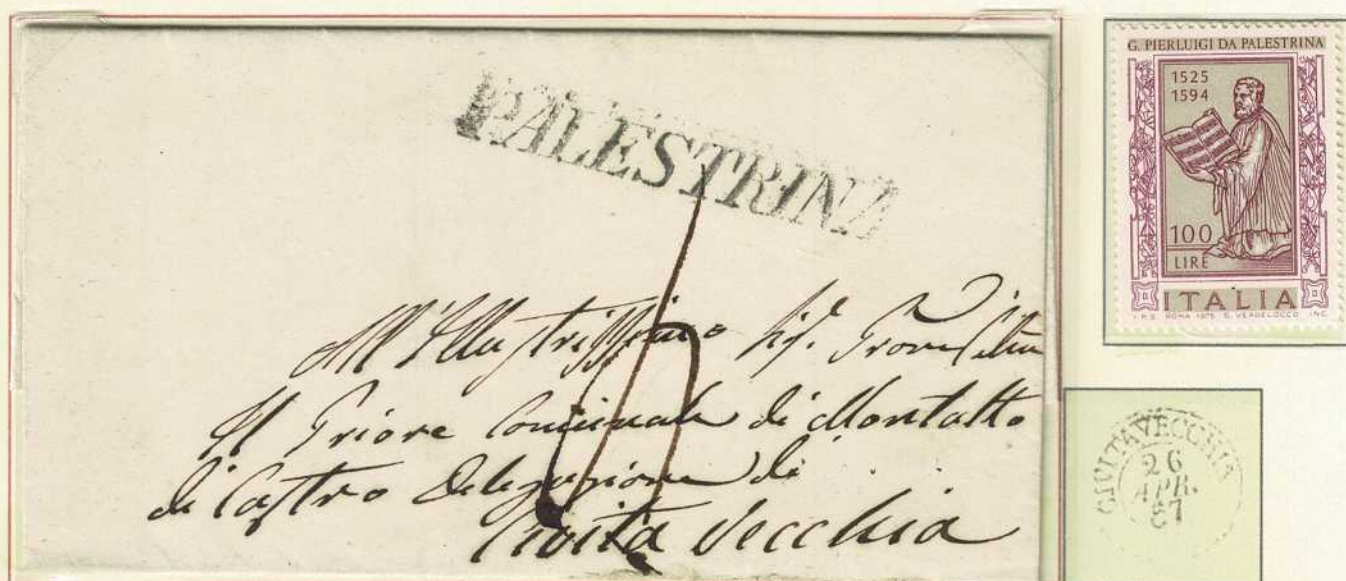 PALESTRINA
All'Illustrissimo Sig.
Il Priore Comunale di Montalto
di Castro Delegazione di
Civita Vecchia
G. PIERLUIGI DA PALESTRINA
1525
1594
100
LIRE
ITALIA
I.P.S. ROMA 1975 E. VERDELOCCO INC.
CIVITAVECCHIA
26
APR.